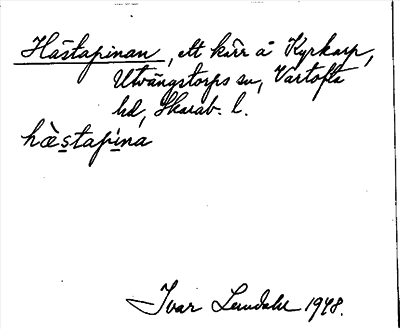 Hästapinan, ett kärr å Kyrkarp,
Utvängstorps sn, Vartofta
hd, Skarab. l.
hæ̀stapìna
Ivar Lundahl 1948.